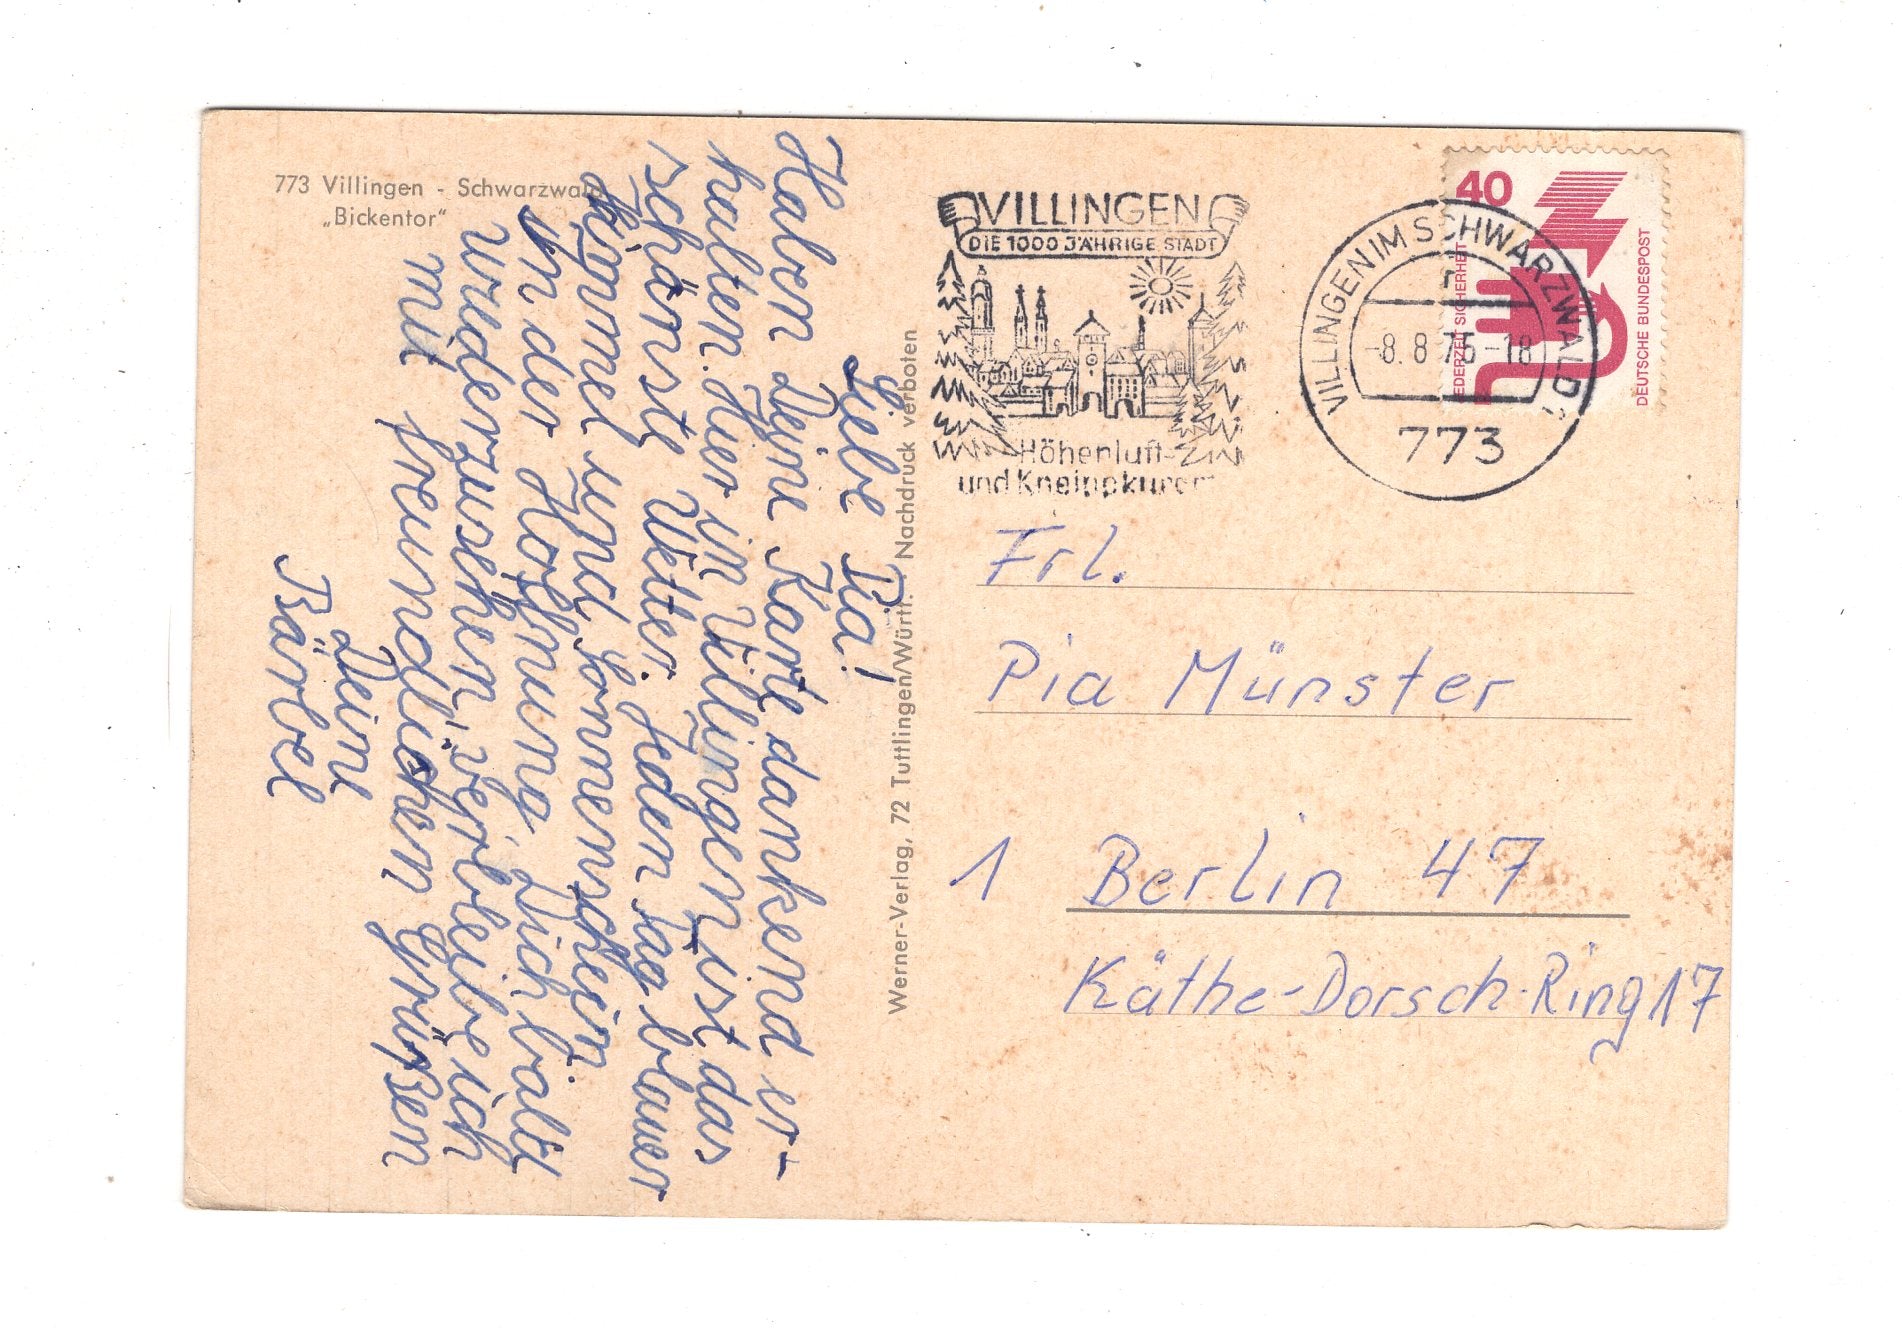 773 Villingen - Schwarzwald
„Bickentor“
Liebe Pia!
Haben Deine Karte dankend er-
halten. Hier in Villingen ist das
schönste Wetter. Jeden Tag blauer
Himmel und Sonnenschein.
In der Hoffnung, Dich bald
wiederzusehen, verbleibe ich
mit freundlichen Grüßen
Deine
Bärbel
Werner-Verlag, 72 Tuttlingen/Württ. Nachdruck verboten
VILLINGEN
DIE 1000 JÄHRIGE STADT
Höhenluft-
und Kneippkurort
VILLINGEN IM SCHWARZWALD 1
-8. 8 75-18
773
40
JEDERZEIT SICHERHEIT
DEUTSCHE BUNDESPOST
Frl.
Pia Münster
1 Berlin 47
Käthe-Dorsch-Ring 17